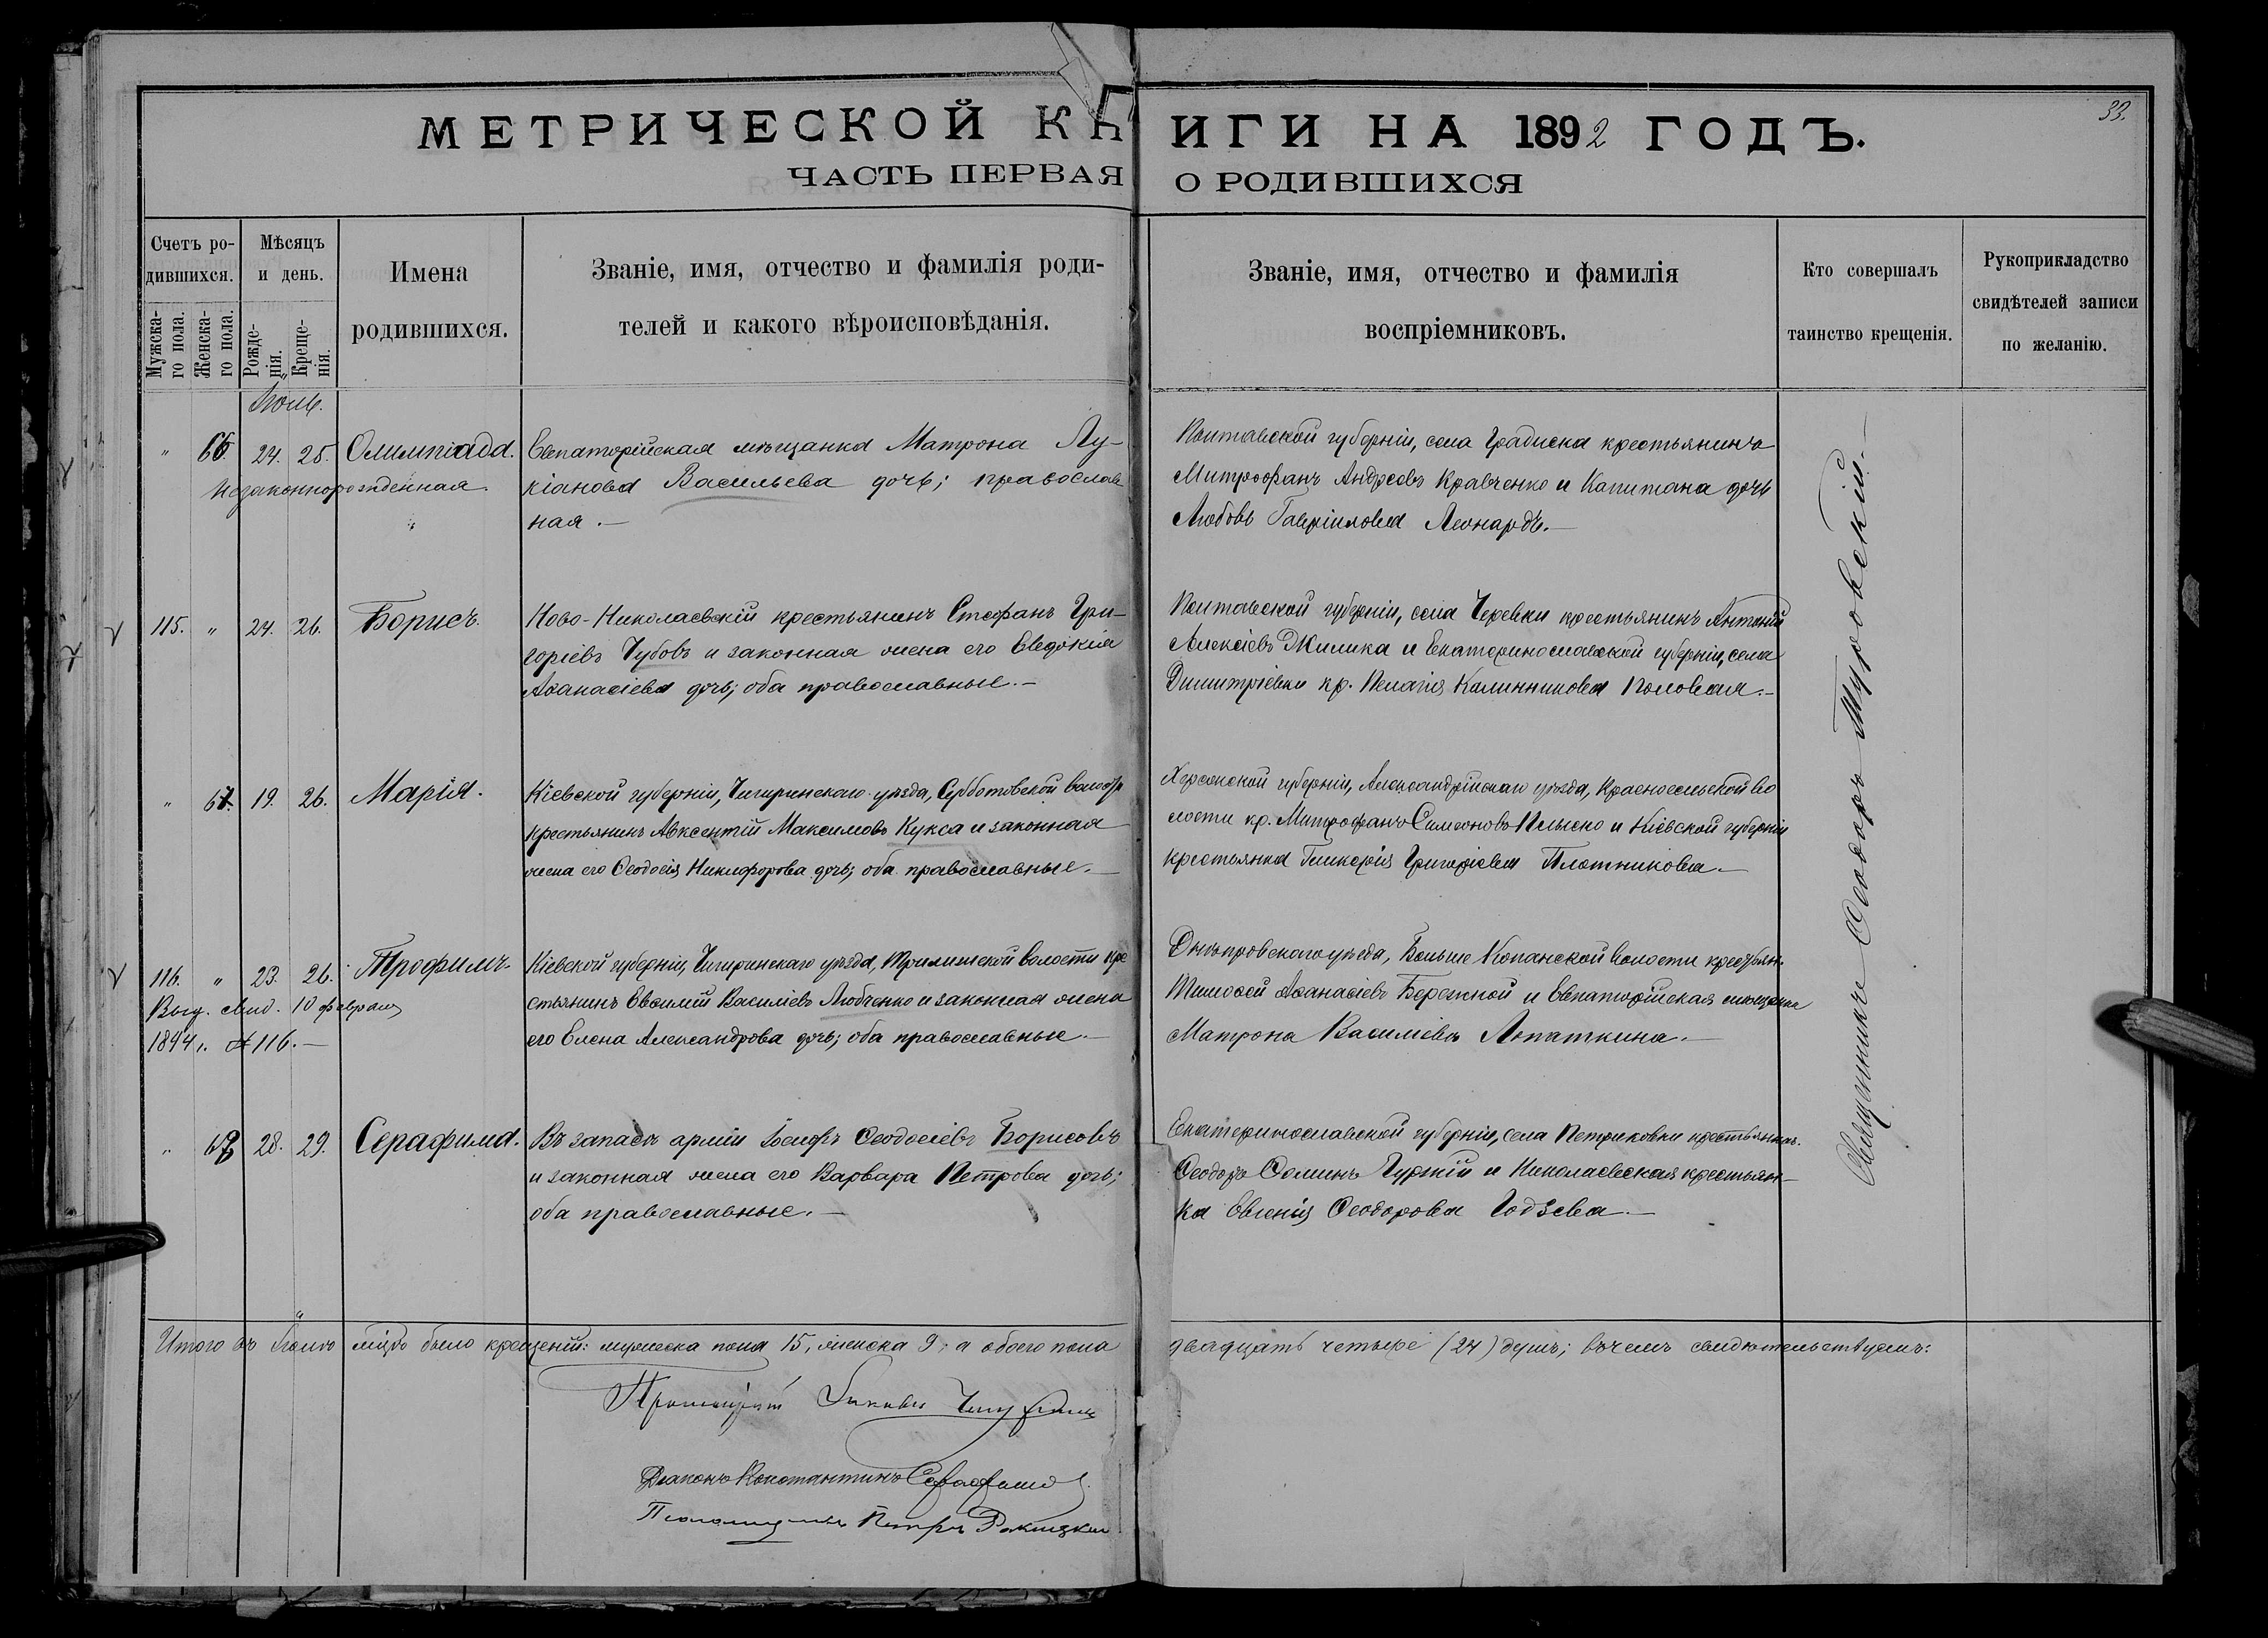 33.
МЕТРИЧЕСКОЙ КНИГИ НА 1892 ГОДЪ.
ЧАСТЬ ПЕРВАЯ О РОДИВШИХСЯ
Счетъ ро-
дившихся.
Мужска-
го пола.
Женска-
го пола.
Мѣсяцъ
и день.
Рожде-
нія.
Креще-
нія.
Имена
родившихся.
Званіе, имя, отчество и фамилія роди-
телей и какого вѣроисповѣданія.
Званіе, имя, отчество и фамилія
воспріемниковъ.
Кто совершалъ
таинство крещенія.
Рукоприкладство
свидѣтелей записи
по желанію.
" 66. 24. 25. Олимпіада.
незаконнорожденная.
Евпаторійская мѣщанка Матрона Лу-
кіанова Васильева дочь; православ
ная.—
Полтавской губерніи, села Градиска крестьянинъ
Митрофанъ Андреевъ Кравченко и Капитана дочь
Любовь Гавріилова Леонардъ.—
115. " 24. 26. Борисъ.
Ново-Николаевскій крестьянинъ Стефанъ Гри-
горіевъ Чубовъ и законная жена его Евдокія
Аѳанасіева дочь; оба православные.—
Полтавской губерніи, села Черевки крестьянинъ Антоній
Алексіевъ Жилика и Екатеринославской губерніи, села
Димитріевки кр. Пелагія Калинникова Половая.—
" 67. 19. 26. Марія.
Кіевской губерніи, Чигиринскаго уѣзда, Субботовской волости
крестьянинъ Авксентій Максимовъ Кукса и законная
жена его Ѳеодосія Никифорова дочь; оба православные.—
Херсонской губерніи, Александрійскаго уѣзда, Красносельской во
лости кр. Митрофанъ Симеоновъ и Кіевской губерніи
крестьянка Гликерія Григоріева Плотникова.—
116. " 23. 26. Трофимъ.
Выд. свид. 10 февраля
1894 г. № 116.—
Кіевской губерніи, Чигиринскаго уѣзда, волости кре
стьянинъ Евѳимій Василіевъ Любченко и законная жена
его Елена Александрова дочь; оба православные.—
Днѣпровскаго уѣзда, Больше Копанской волости крестьян.
Тимоѳей Аѳанасіевъ Бережной и Евпаторійская мѣщанка
Матрона Василіева Лопаткина.—
" 68 28. 29. Серафима.
Въ запасѣ арміи Іосифъ Ѳеодосіевъ Борисовъ
и законная жена его Варвара Петрова дочь;
оба православные.—
Екатеринославской губерніи, села Петриковки крестьянинъ
Ѳеодоръ Ѳоминъ Гуржій и Николаевская крестьян-
ка Евгенія Ѳеодорова Годзева.—
Священникъ Ѳеодоръ Туровскій.—
Итого въ Іюлѣ мѣсяцѣ было крещеній: мужеска пола 15, женска 9, а обоего пола двадцать четыре (24) душъ; въ чемъ свидѣтельствуемъ:
Протоіерей
Діаконъ Константинъ
Псаломщикъ Петръ